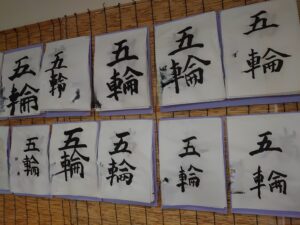 五輪
五輪
五輪
五輪
五輪
五輪
五輪
五輪
五輪
五輪